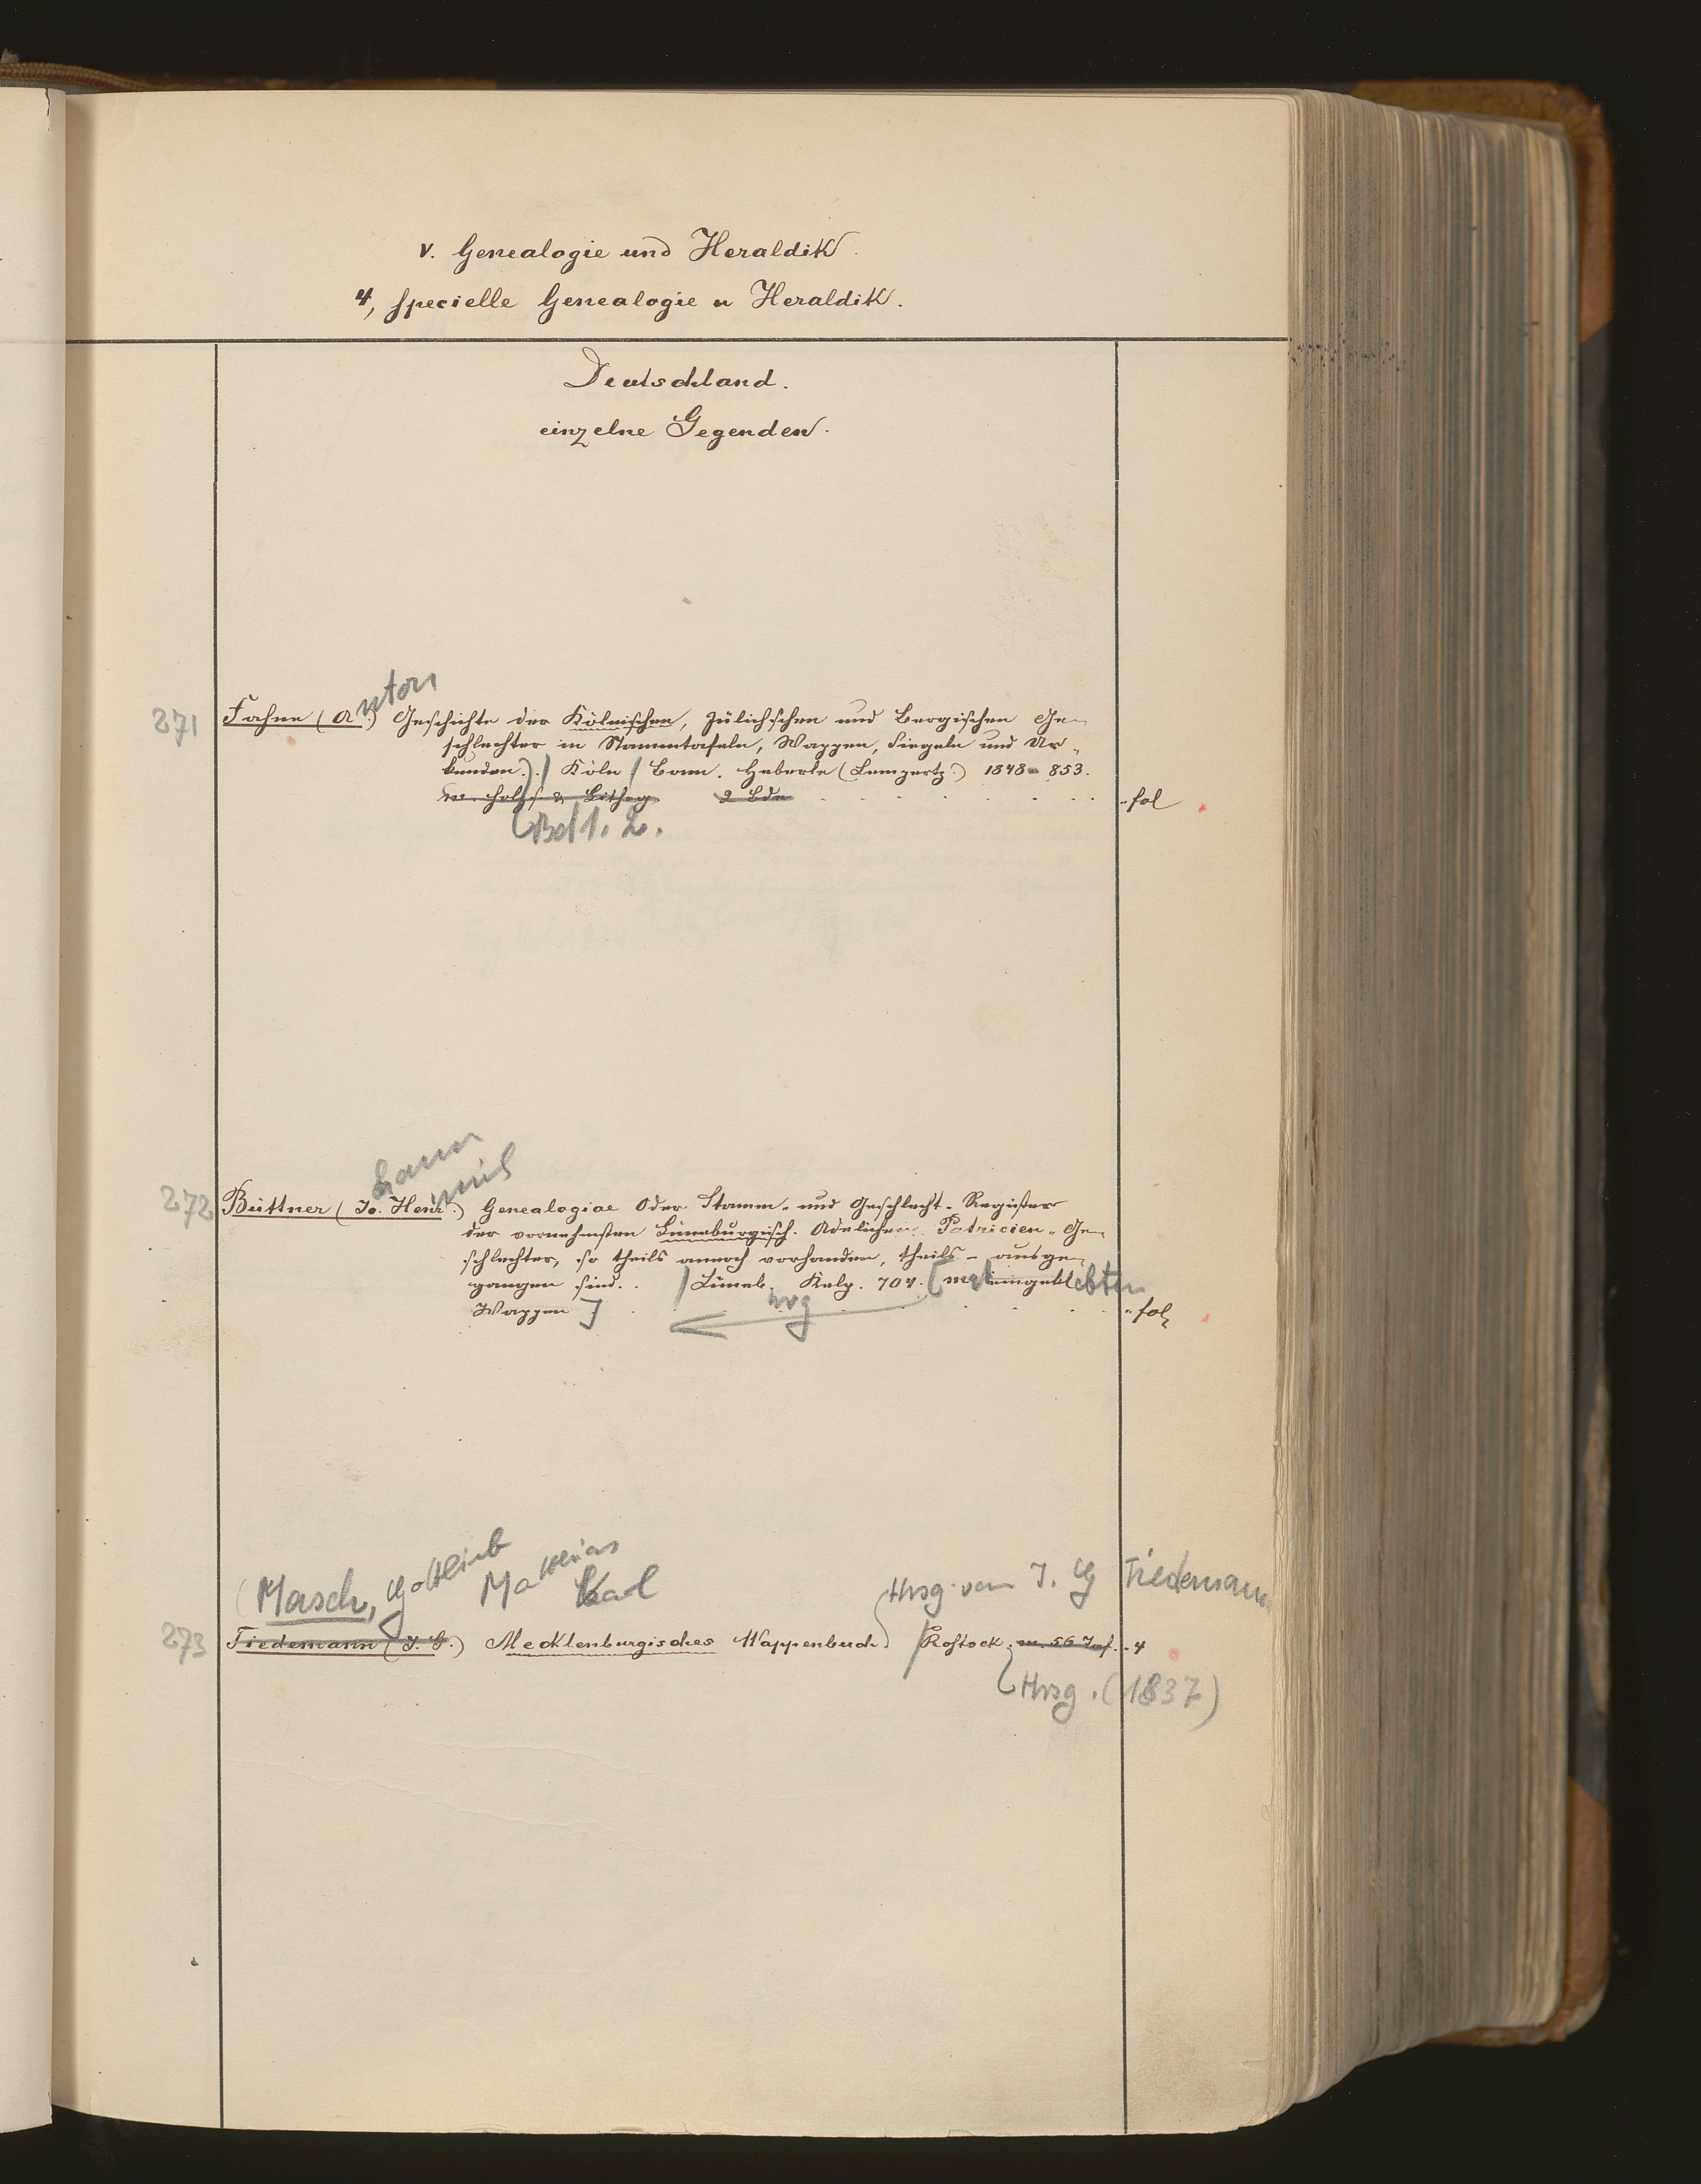 V. Genealogie und Heraldik.
4, specielle Genealogie u Heraldik.
Deutschland.
einzelne Gegenden.
anton
271 Fahne (A.) Geschichte der Kölnischen, Jülichschen und Bergischen Ge-
schlechter in Stammtafeln, Wappen, Siegeln und Ur-
kunden.) / Köln / Bonn. Heberle (Lempertz.) 1848-853.
m. Holzs. & Lithog. 2 Bde fol
(Bd 1. 2.
hann
inrich
272 Büttner (Jo. Henr.) Genealogiae Oder Stamm- und Geschlecht-Register
der vornehmsten Lüneburgisch. Adelichen Patricien-Ge-
schlechter, so theils annoch vorhanden, theils - ausge-
gangen sind. / Lüneb. Kelp. 704. [mit eingeklebten
Wappen] fol
(Masch, Gottlieb Matthias Karl
Hrsg. von J. G Tiedemann
273 Tiedemann (J. G.) Mecklenburgisches Wappenbuch. / Rostock. m. 56 Taf. 4
Hrsg. (1837)